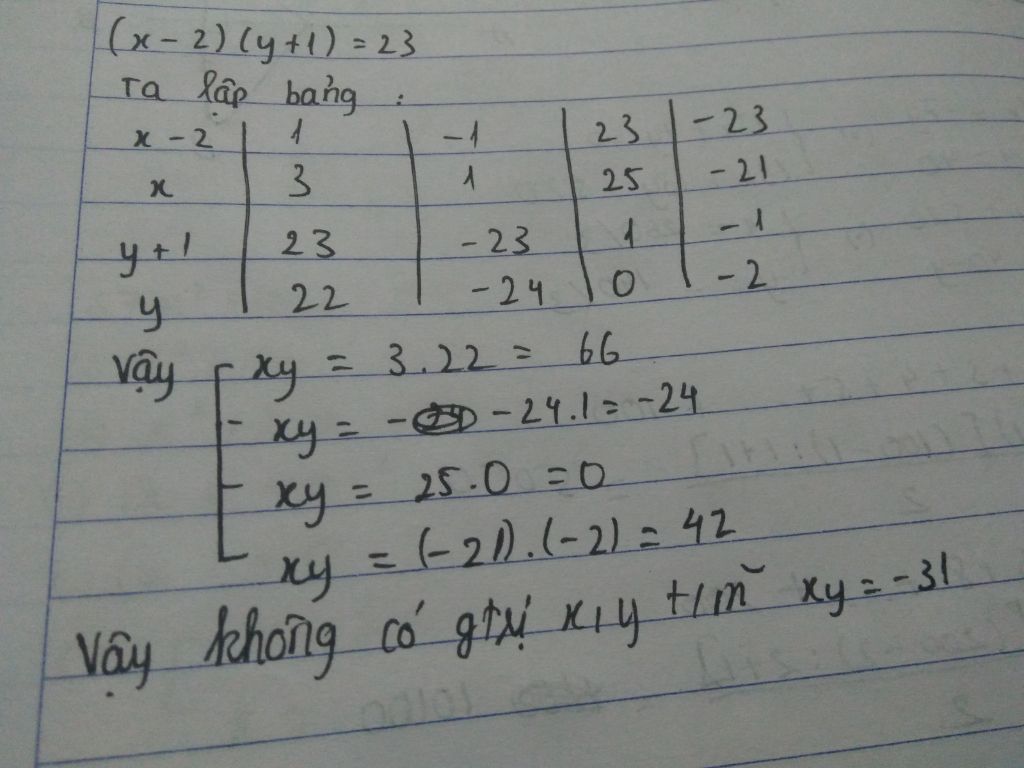 (x - 2) (y + 1) = 23
Ta lập bảng :
x - 2 | 1 | -1 | 23 | -23
x | 3 | 1 | 25 | -21
y + 1 | 23 | -23 | 1 | -1
y | 22 | -24 | 0 | -2
Vậy [ xy = 3.22 = 66
xy = - -24.1 = -24
xy = 25.0 = 0
xy = (-21).(-2) = 42
Vậy không có gtrị x, y t/m xy = -31